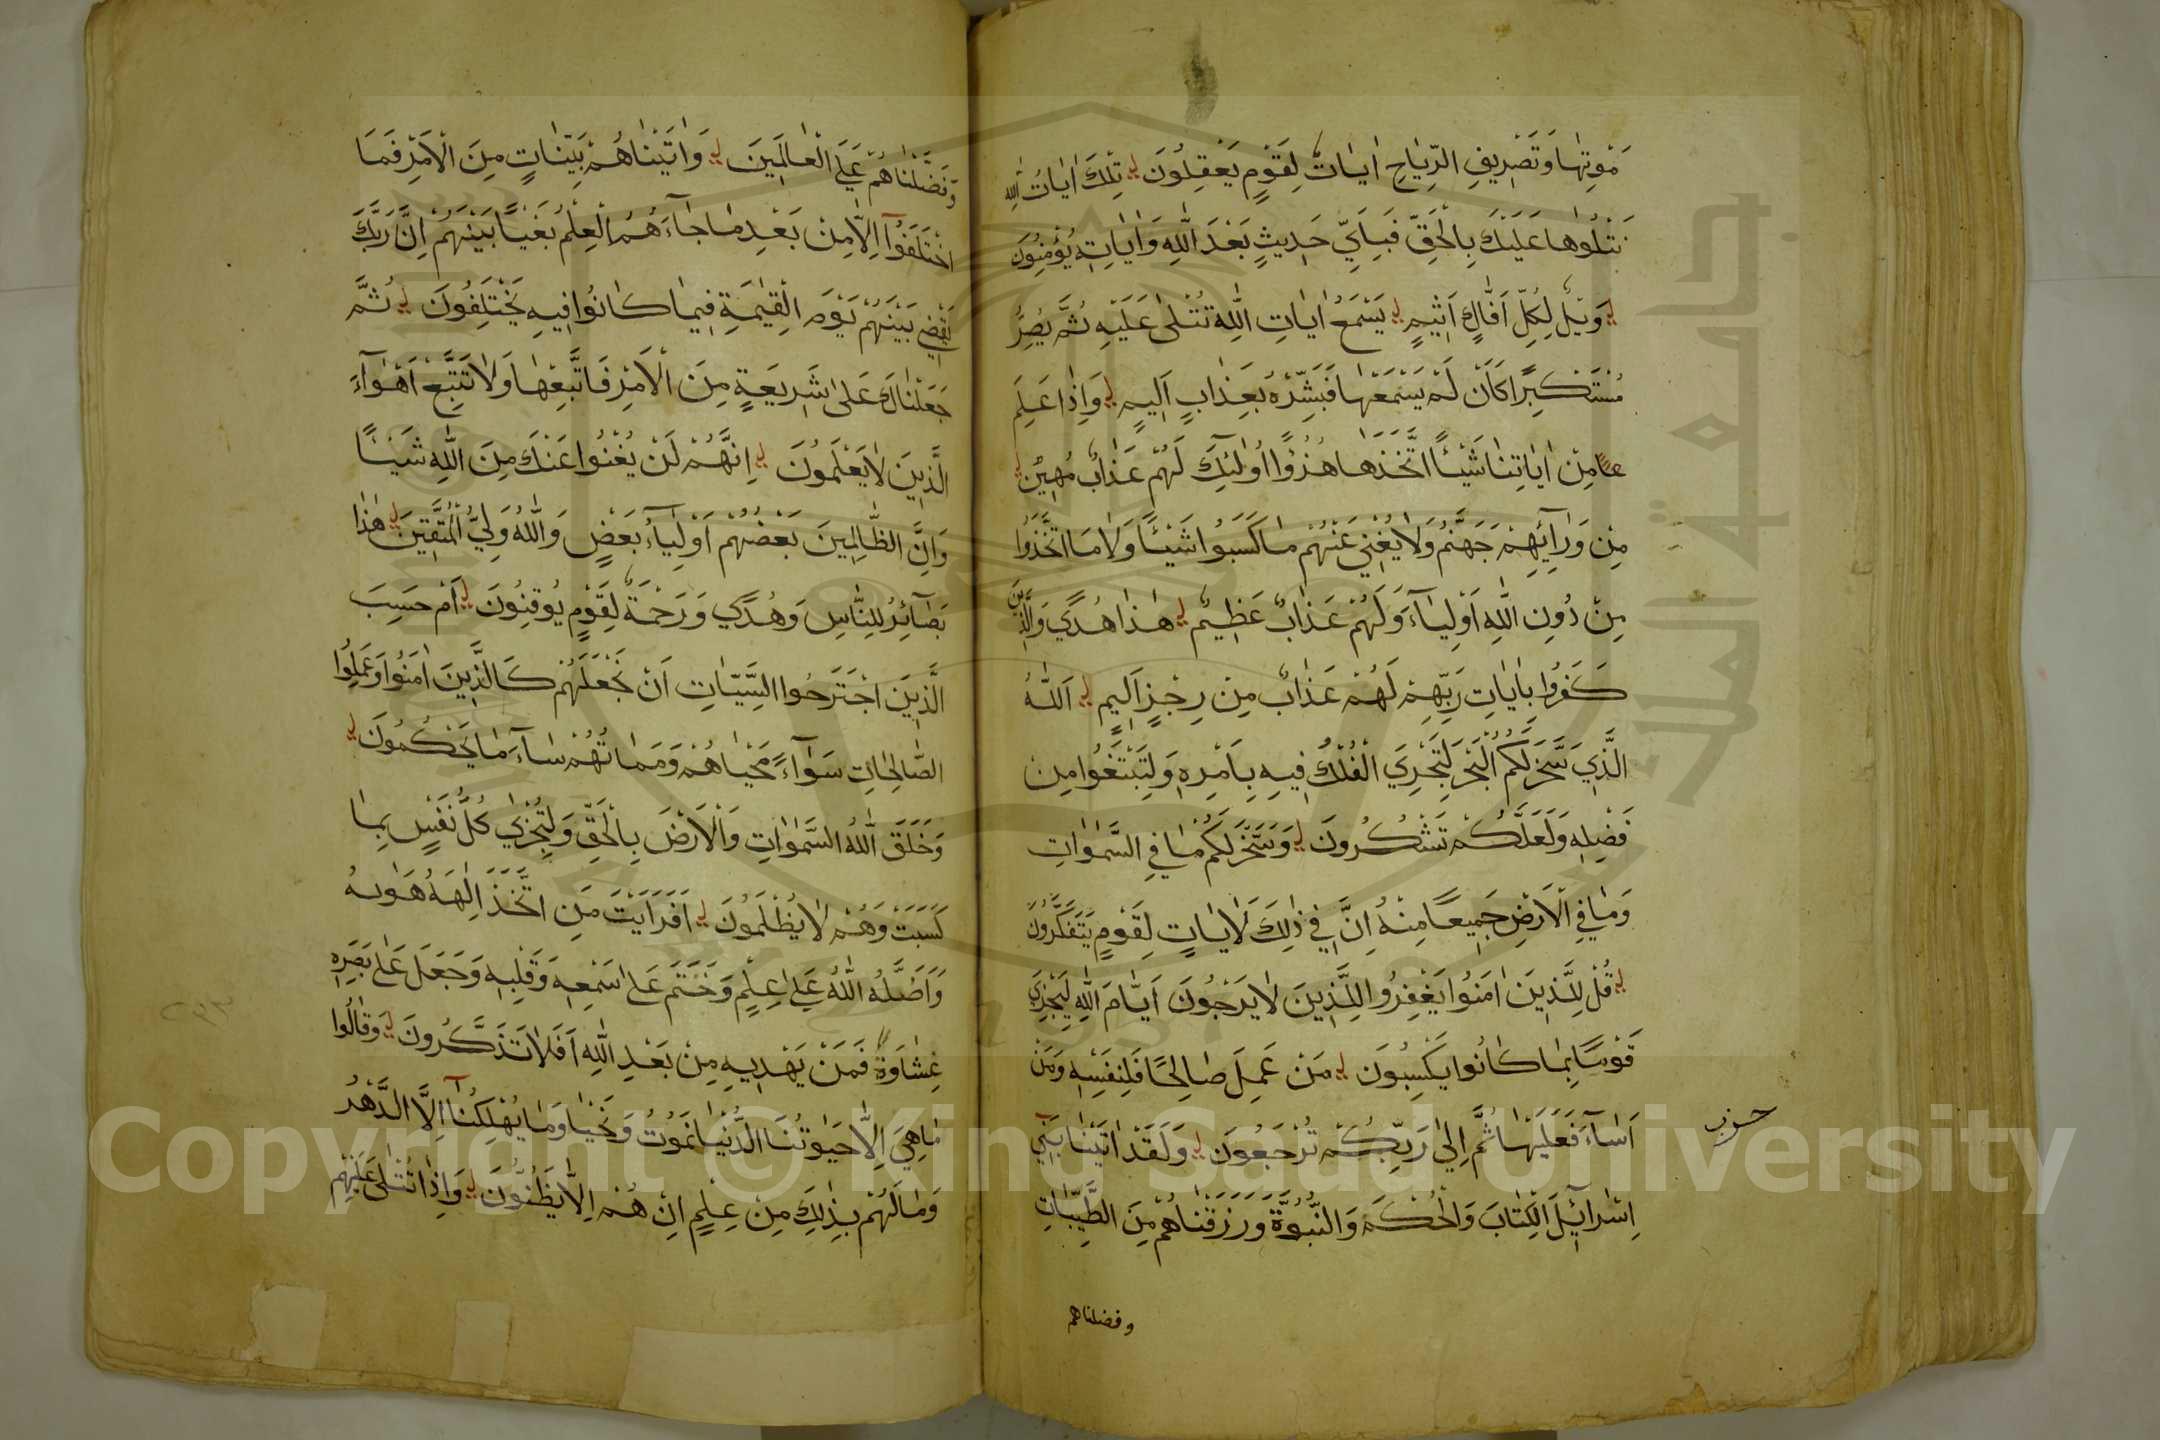 مَوْتِهَا وَتَصْرِيفِ الرِّيَاحِ اٰيَاتٌ لِقَوْمٍ يَعْقِلُونَ تِلْكَ اٰيَاتُ اللّٰهِ
نَتْلُوهَا عَلَيْكَ بِالْحَقِّ فَبِاَيِّ حَدِيثٍ بَعْدَ اللّٰهِ وَاٰيَاتِهِ يُؤْمِنُونَ
وَيْلٌ لِكُلِّ اَفَّاكٍ اَثِيمٍ يَسْمَعُ اٰيَاتِ اللّٰهِ تُتْلٰى عَلَيْهِ ثُمَّ يُصِرُّ
مُسْتَكْبِرًا كَاَنْ لَمْ يَسْمَعْهَا فَبَشِّرْهُ بِعَذَابٍ اَلِيمٍ وَاِذَا عَلِمَ
مِنْ اٰيَاتِنَا شَيْئًا اتَّخَذَهَا هُزُؤًا اُولٰئِكَ لَهُمْ عَذَابٌ مُهِينٌ
مِنْ وَرَآئِهِمْ جَهَنَّمُ وَلَا يُغْنِي عَنْهُمْ مَا كَسَبُوا شَيْئًا وَلَا مَا اتَّخَذُوا
مِنْ دُونِ اللّٰهِ اَوْلِيَآءَ وَلَهُمْ عَذَابٌ عَظِيمٌ هٰذَا هُدًي وَالَّذِينَ
كَفَرُوا بِاٰيَاتِ رَبِّهِمْ لَهُمْ عَذَابٌ مِنْ رِجْزٍ اَلِيمٍ اَللّٰهُ
الَّذِي سَخَّرَ لَكُمُ الْبَحْرَ لِتَجْرِيَ الْفُلْكُ فِيهِ بِاَمْرِهِ وَلِتَبْتَغُوا مِنْ
فَضْلِهِ وَلَعَلَّكُمْ تَشْكُرُونَ وَسَخَّرَ لَكُمْ مَا فِي السَّمٰوَاتِ
وَمَا فِي الْاَرْضِ جَمِيعًا مِنْهُ اِنَّ فِي ذٰلِكَ لَاٰيَاتٍ لِقَوْمٍ يَتَفَكَّرُونَ
قُلْ لِلَّذِينَ اٰمَنُوا يَغْفِرُوا لِلَّذِينَ لَا يَرْجُونَ اَيَّامَ اللّٰهِ لِيَجْزِيَ
قَوْمًا بِمَا كَانُوا يَكْسِبُونَ مَنْ عَمِلَ صَالِحًا فَلِنَفْسِهِ وَمَنْ
اَسَآءَ فَعَلَيْهَا ثُمَّ اِلٰي رَبِّكُمْ تُرْجَعُونَ وَلَقَدْ اٰتَيْنَا بَنِي
حزب
اِسْرَآئِيلَ الْكِتَابَ وَالْحُكْمَ وَالنُّبُوَّةَ وَرَزَقْنَاهُمْ مِنَ الطَّيِّبَاتِ
وفضلناهم
وَفَضَّلْنَاهُمْ عَلَي الْعَالَمِينَ وَاٰتَيْنَاهُمْ بَيِّنَاتٍ مِنَ الْاَمْرِ فَمَا
اخْتَلَفُوٓا اِلَّا مِنْ بَعْدِ مَا جَآءَهُمُ الْعِلْمُ بَغْيًا بَيْنَهُمْ اِنَّ رَبَّكَ
يَقْضِي بَيْنَهُمْ يَوْمَ الْقِيٰمَةِ فِيمَا كَانُوا فِيهِ يَخْتَلِفُونَ ثُمَّ
جَعَلْنَاكَ عَلٰى شَرِيعَةٍ مِنَ الْاَمْرِ فَاتَّبِعْهَا وَلَا تَتَّبِعْ اَهْوَآءَ
الَّذِينَ لَا يَعْلَمُونَ اِنَّهُمْ لَنْ يُغْنُوا عَنْكَ مِنَ اللّٰهِ شَيْئًا
وَاِنَّ الظَّالِمِينَ بَعْضُهُمْ اَوْلِيَآءُ بَعْضٍ وَاللّٰهُ وَلِيُّ الْمُتَّقِينَ هٰذَا
بَصَآئِرُ لِلنَّاسِ وَهُدًي وَرَحْمَةٌ لِقَوْمٍ يُوقِنُونَ اَمْ حَسِبَ
الَّذِينَ اجْتَرَحُوا السَّيِّاٰتِ اَنْ نَجْعَلَهُمْ كَالَّذِينَ اٰمَنُوا وَعَمِلُوا
الصَّالِحَاتِ سَوَآءً مَحْيَاهُمْ وَمَمَاتُهُمْ سَآءَ مَا يَحْكُمُونَ
وَخَلَقَ اللّٰهُ السَّمٰوَاتِ وَالْاَرْضَ بِالْحَقِّ وَلِتُجْزٰي كُلُّ نَفْسٍ بِمَا
كَسَبَتْ وَهُمْ لَا يُظْلَمُونَ اَفَرَاَيْتَ مَنِ اتَّخَذَ اِلٰهَهُ هَوٰيهُ
وَاَضَلَّهُ اللّٰهُ عَلٰي عِلْمٍ وَخَتَمَ عَلٰى سَمْعِهِ وَقَلْبِهِ وَجَعَلَ عَلٰي بَصَرِهِ
غِشَاوَةً فَمَنْ يَهْدِيهِ مِنْ بَعْدِ اللّٰهِ اَفَلَا تَذَكَّرُونَ وَقَالُوا
مَا هِيَ اِلَّا حَيٰوتُنَا الدُّنْيَا نَمُوتُ وَنَحْيَا وَمَا يُهْلِكُنَآ اِلَّا الدَّهْرُ
وَمَا لَهُمْ بِذٰلِكَ مِنْ عِلْمٍ اِنْ هُمْ اِلَّا يَظُنُّونَ وَاِذَا تُتْلٰى عَلَيْهِمْ
جامعة الملك
Copyright © King Saud University